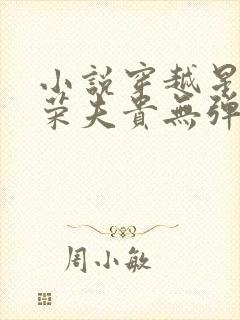 小說穿越星
荣夫貴無彈
周小敏